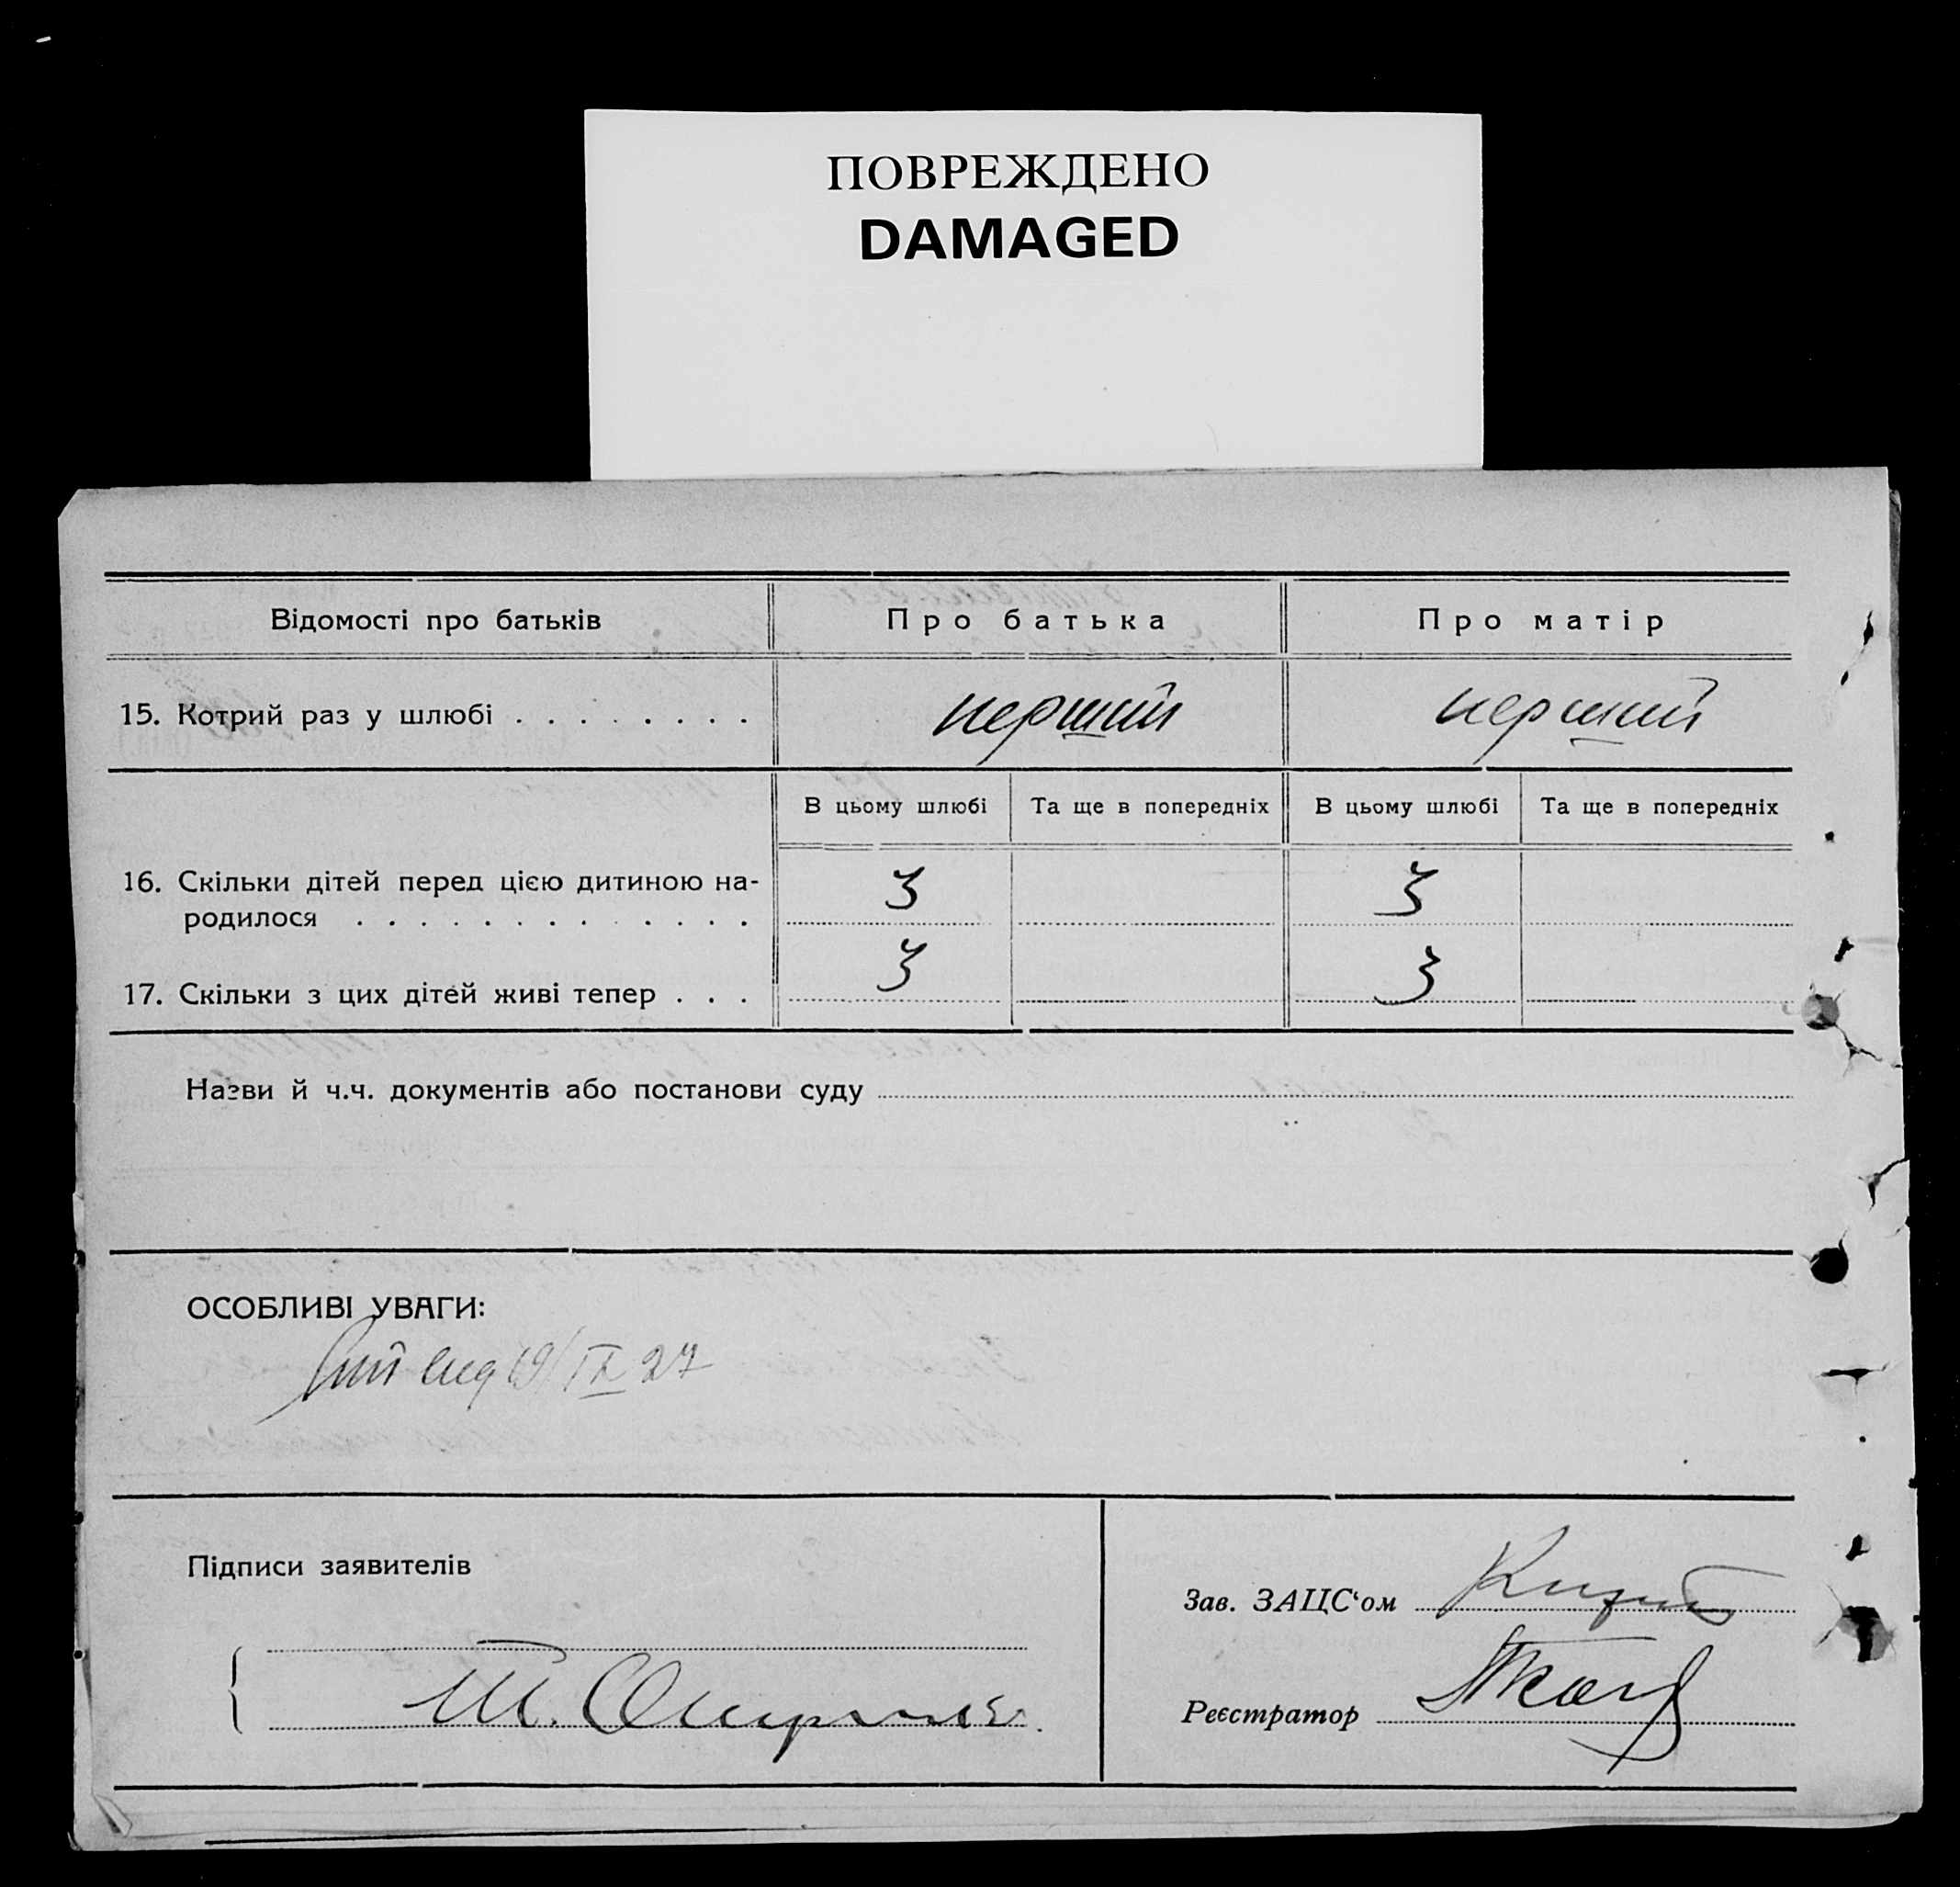 ПОВРЕЖДЕНО
DAMAGED
Відомості про батьків
Про батька
Про матір
15. Котрий раз у шлюбі . . . . . . . .
перший
перший
В цьому шлюбі
Та ще в попередніх
В цьому шлюбі
Та ще в попередніх
16. Скільки дітей перед цією дитиною на-
родилося . . . . . . . . . . . . . .
3
3
17. Скільки з цих дітей живі тепер . . .
3
3
Назви й ч.ч. документів або постанови суду
ОСОБЛИВІ УВАГИ:
19/IX 27
Підписи заявителів
Зав. ЗАЦС‘ом
Реєстратор